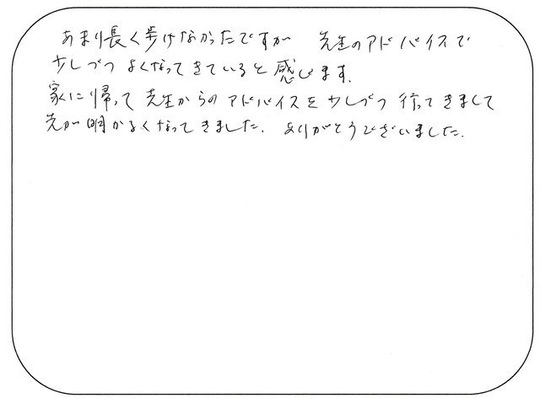 あまり長く歩けなかったですが 先生のアドバイスで
少しづつ よくなってきていると感じます.
家に帰って 先生からのアドバイスを少しづつ 行ってきまして
先が明かるくなってきました. ありがとうございました.